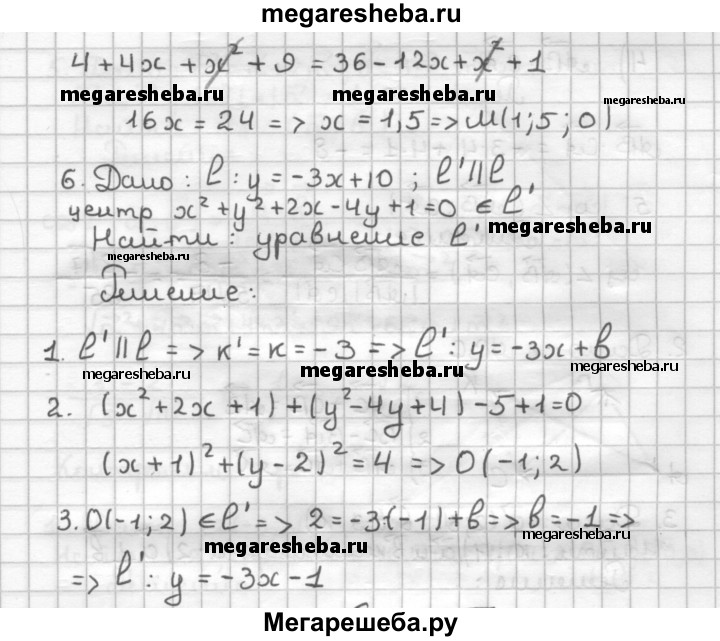 megaresheba.ru
4 + 4x + x² + 9 = 36 - 12x + x² + 1
megaresheba.ru megaresheba.ru megaresheba.ru
16x = 24 => x = 1,5 => M(1;5;0)
6. Дано: l: y = -3x+10; l' || l
центр x² + y² + 2x - 4y + 1 = 0 ∈ l'
megaresheba.ru
Найти: уравнение l'
megaresheba.ru
Решение:
1. l' || l => к' = к = -3 => l': y = -3x + в
megaresheba.ru megaresheba.ru megaresheba.ru
2. (x² + 2x + 1) + (y² - 4y + 4) - 5 + 1 = 0
(x + 1)² + (y - 2)² = 4 => O(-1; 2)
3. O(-1; 2) ∈ l' => 2 = -3·(-1) + в => в = -1 =>
megaresheba.ru megaresheba.ru
=> l': y = -3x - 1
Мегарешеба.ру